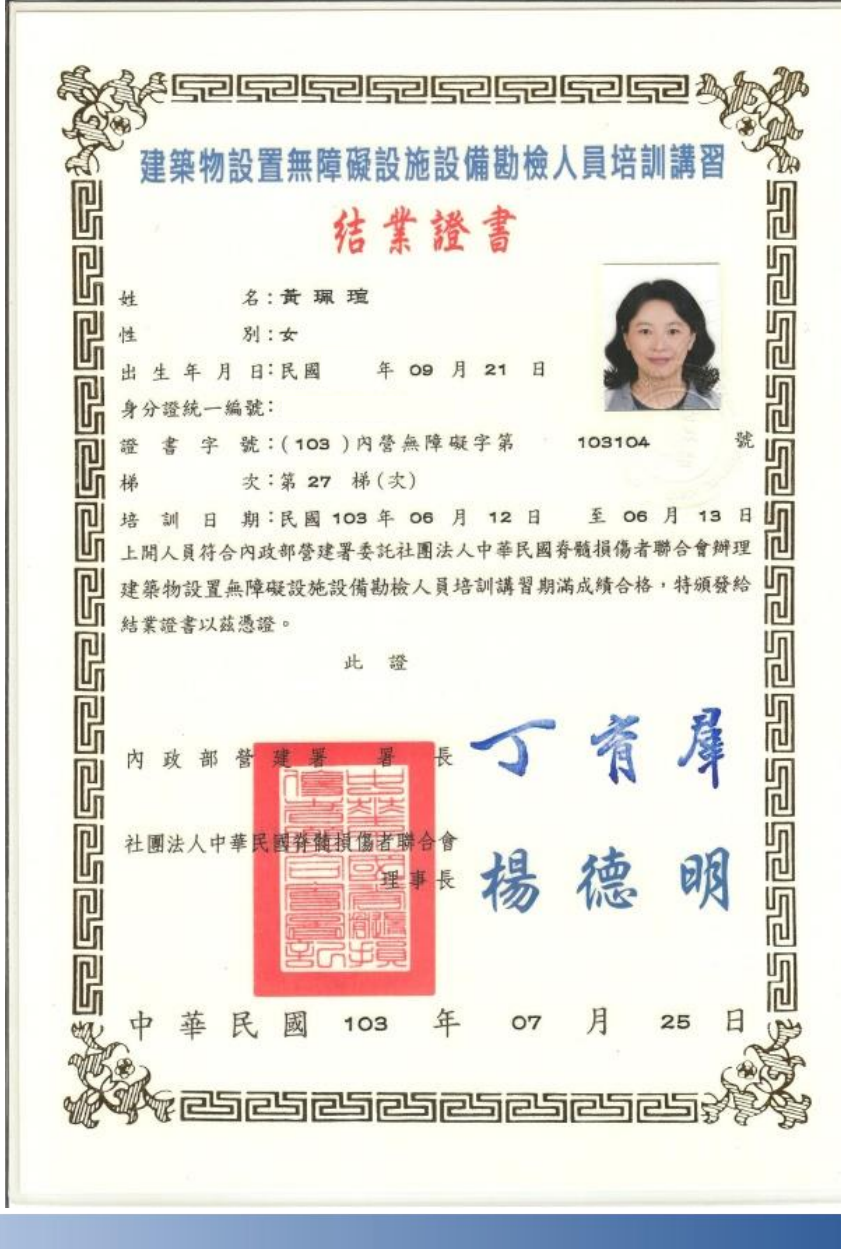 建築物設置無障礙設施設備勘檢人員培訓講習
结業證書
姓 名：黃珮瑄
性 別：女
出生年月日：民國 年 09 月 21 日
身分證統一編號：
證書字號：(103)內營無障礙字第 103104 號
梯 次：第 27 梯(次)
培訓日期：民國 103 年 06 月 12 日 至 06 月 13 日
上開人員符合內政部營建署委託社團法人中華民國脊髓損傷者聯合會辦理
建築物設置無障礙設施設備勘檢人員培訓講習期滿成績合格，特頒發給
結業證書以茲憑證。
此 證
內政部營建署 署長 丁育群
社團法人中華民國脊髓損傷者聯合會
理事長 楊德明
中華民國 103 年 07 月 25 日